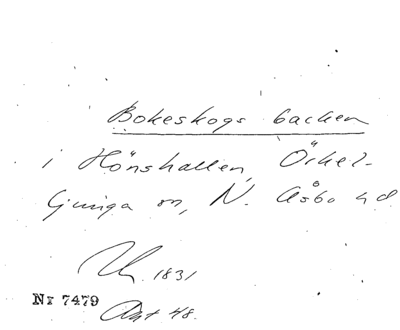 Bokeskogs backen
i Hönshallen, Örkel-
ljunga sn, N. Åsbo hd
1831
Nr 7479
Akt 48.